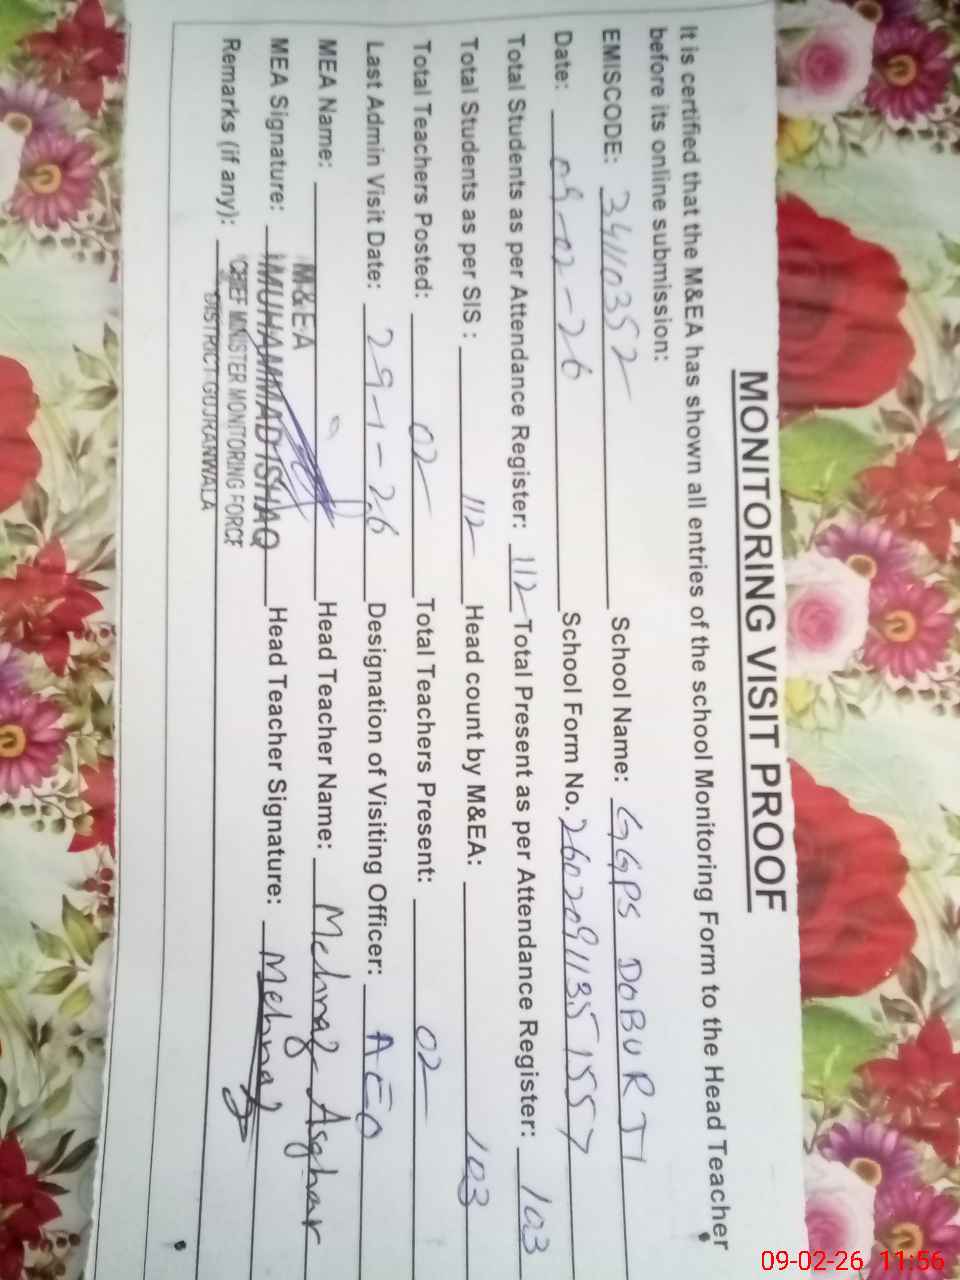 MONITORING VISIT PROOF
It is certified that the M&EA has shown all entries of the school Monitoring Form to the Head Teacher
before its online submission:
EMISCODE: 34110352 School Name: GGPS DOBURJI
Date: 09-02-26 School Form No. 2602091135 1557
Total Students as per Attendance Register: 112 Total Present as per Attendance Register: 103
Total Students as per SIS : 112 Head count by M&EA: 103
Total Teachers Posted: 02 Total Teachers Present: 02
Last Admin Visit Date: 29-1-26 Designation of Visiting Officer: AEO
MEA Name: M&EA Head Teacher Name: Mehnaz Asghar
MEA Signature: MUHAMMAD ISHAQ Head Teacher Signature: Mehnaz
Remarks (if any): CHIEF MINISTER MONITORING FORCE
DISTRICT GUJRANWALA
09-02-26 11:56